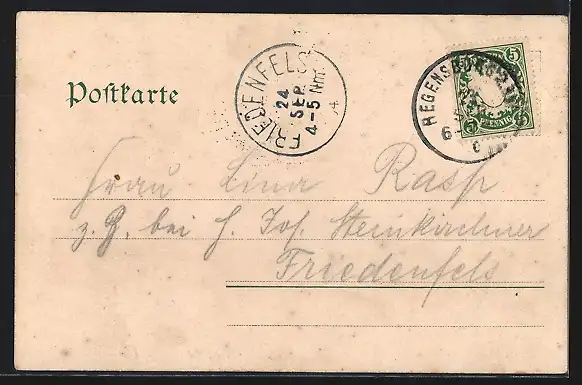 Postkarte
FRIEDENFELS
24
SEP.
4-5 Nm.
REGENSBURG
6-
5
5
PFENNIG
Frau Lina Rasp
z. B. bei H. Jos. Steinkirchner
Friedenfels